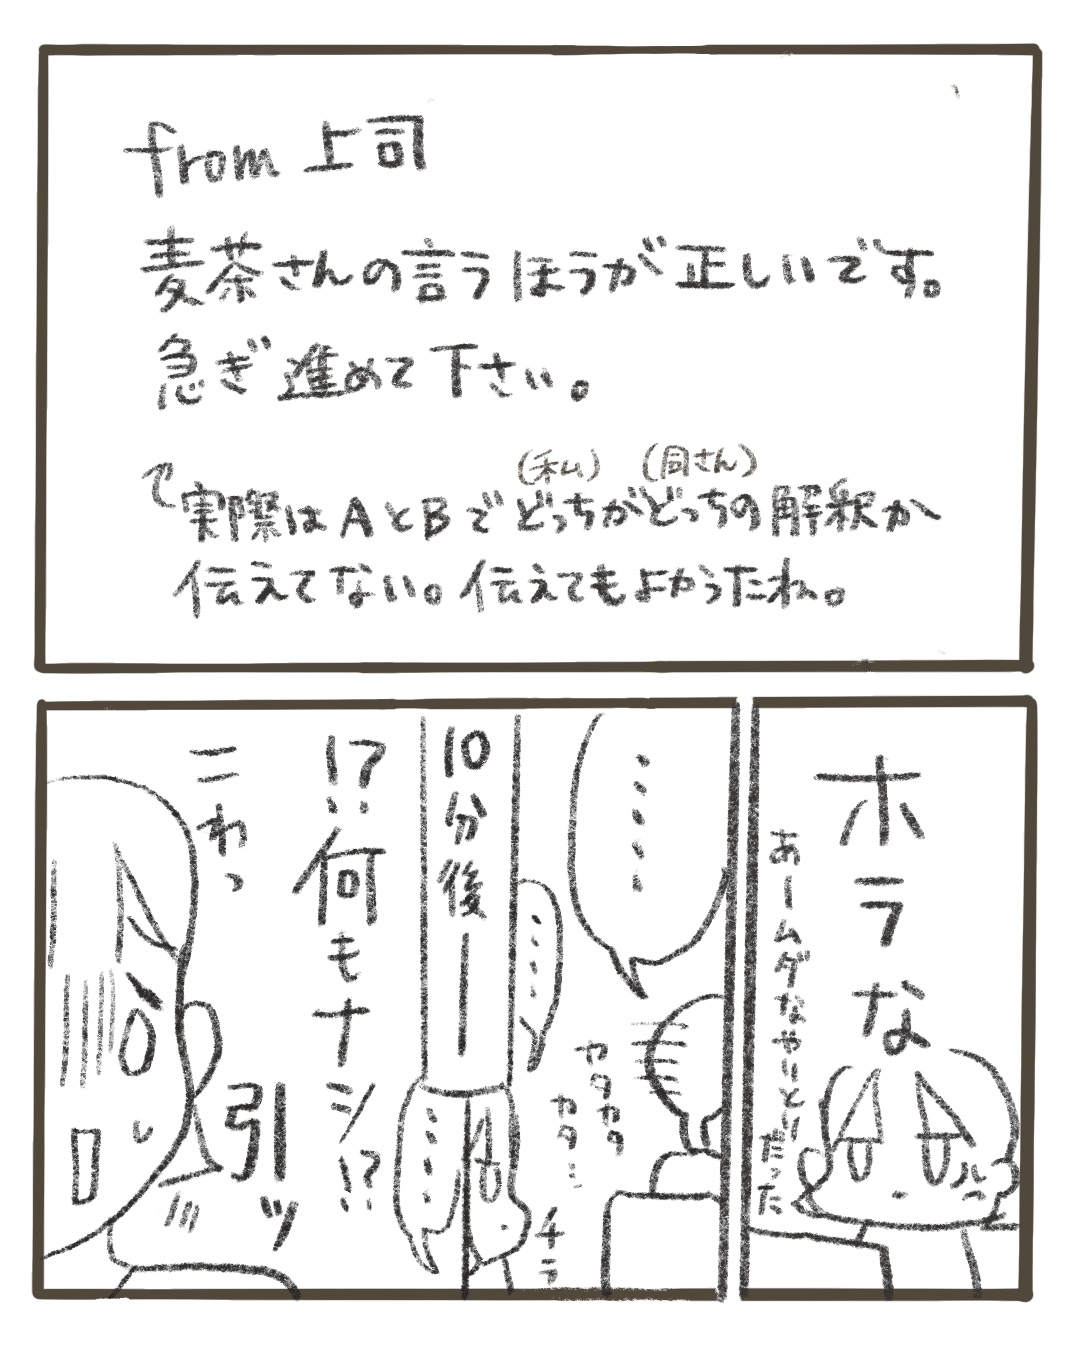 from 上司
麦茶さんの言うほうが正しいです。
急ぎ進めて下さい。
(私) (同さん)
実際はAとBでどっちがどっちの解釈か
伝えてない。伝えてもよかったね。
ホラな
あームダなやりとりだった
……
カタカタ
カタ…
……
10分後ー
……
チラ
!?何もナシ!?
こわっ
引ッ